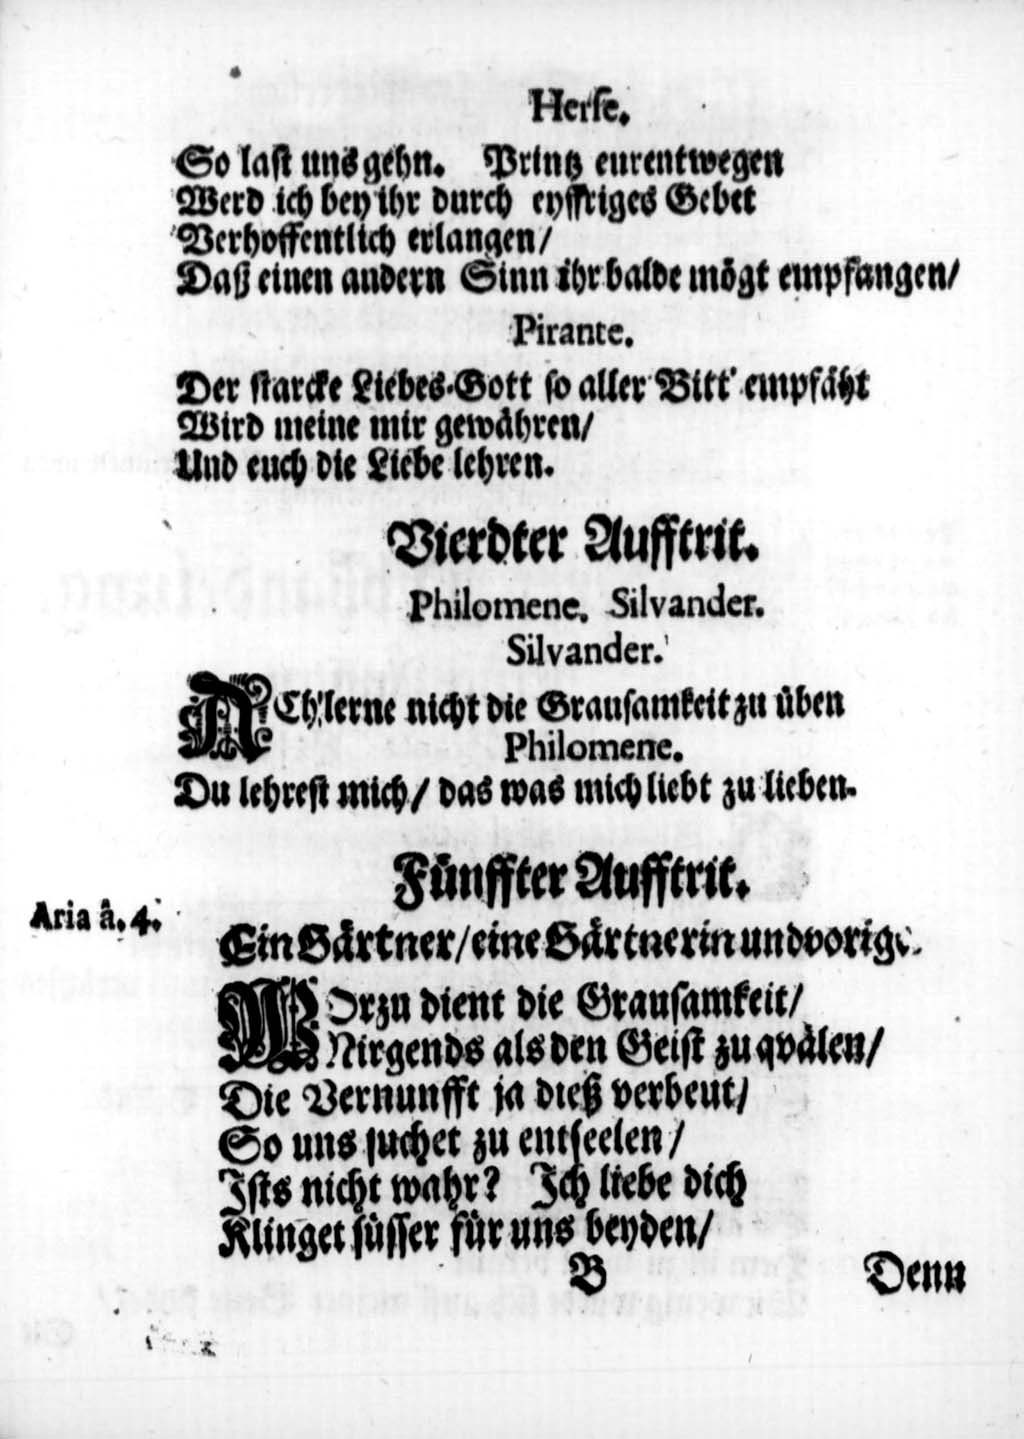 Herse.
So last uns gehn. Printz eurentwegen
Werd ich bey ihr durch eyffriges Gebet
Verhoffentlich erlangen/
Daß einen andern Sinn ihr balde mögt empfangen/
Pirante.
Der starcke Liebes-Gott so aller Bitt' empfäht
Wird meine mir gewähren/
Und euch die Liebe lehren.
Vierdter Aufftrit.
Philomene. Silvander.
Silvander.
ACh! lerne nicht die Grausamkeit zu üben
Philomene.
Du lehrest mich/ das was mich liebt zu lieben.
Fünffter Aufftrit.
Aria â. 4.
Ein Gärtner/ eine Gärtnerin und vorige.
WOrzu dient die Grausamkeit/
Nirgends als den Geist zu qvälen/
Die Vernunfft ja dieß verbeut/
So uns suchet zu entseelen/
Ists nicht wahr? Ich liebe dich
Klinget süsser für uns beyden/
B Denn